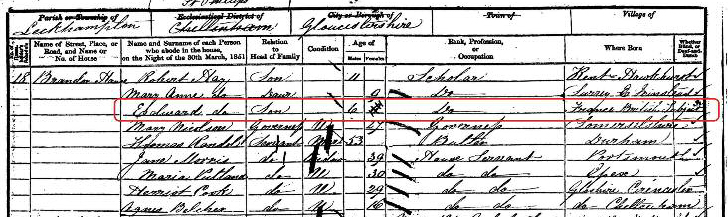 Parish or Township of Ecclesiastical District of City or Borough of Town of Village of
Leckhampton Cheltenham Gloucestershire
Name of Street, Place, or Road, and Name or No. of House
Name and Surname of each Person who abode in the house, on the Night of the 30th March, 1851
Relation to Head of Family
Condition
Age of
Males Females
Rank, Profession, or Occupation
Where Born
Whether Blind, or Deaf-and-Dumb
18 Brandon House Robert Hay Son 11 Scholar Kent Hawkhurst
Mary Anne do Daur 9 Do Surrey
Edward do Son 6 Do France British Subject
Mary Governess U 27 Governess Somersetshire
Thomas Servant 53 Butler Durham
Jane Morris do 39 House Servant Portsmouth
Maria do U 30 do do
Harriet Cook do U 29 do do Cirencester
Agnes Belcher do U 16 do do Cheltenham